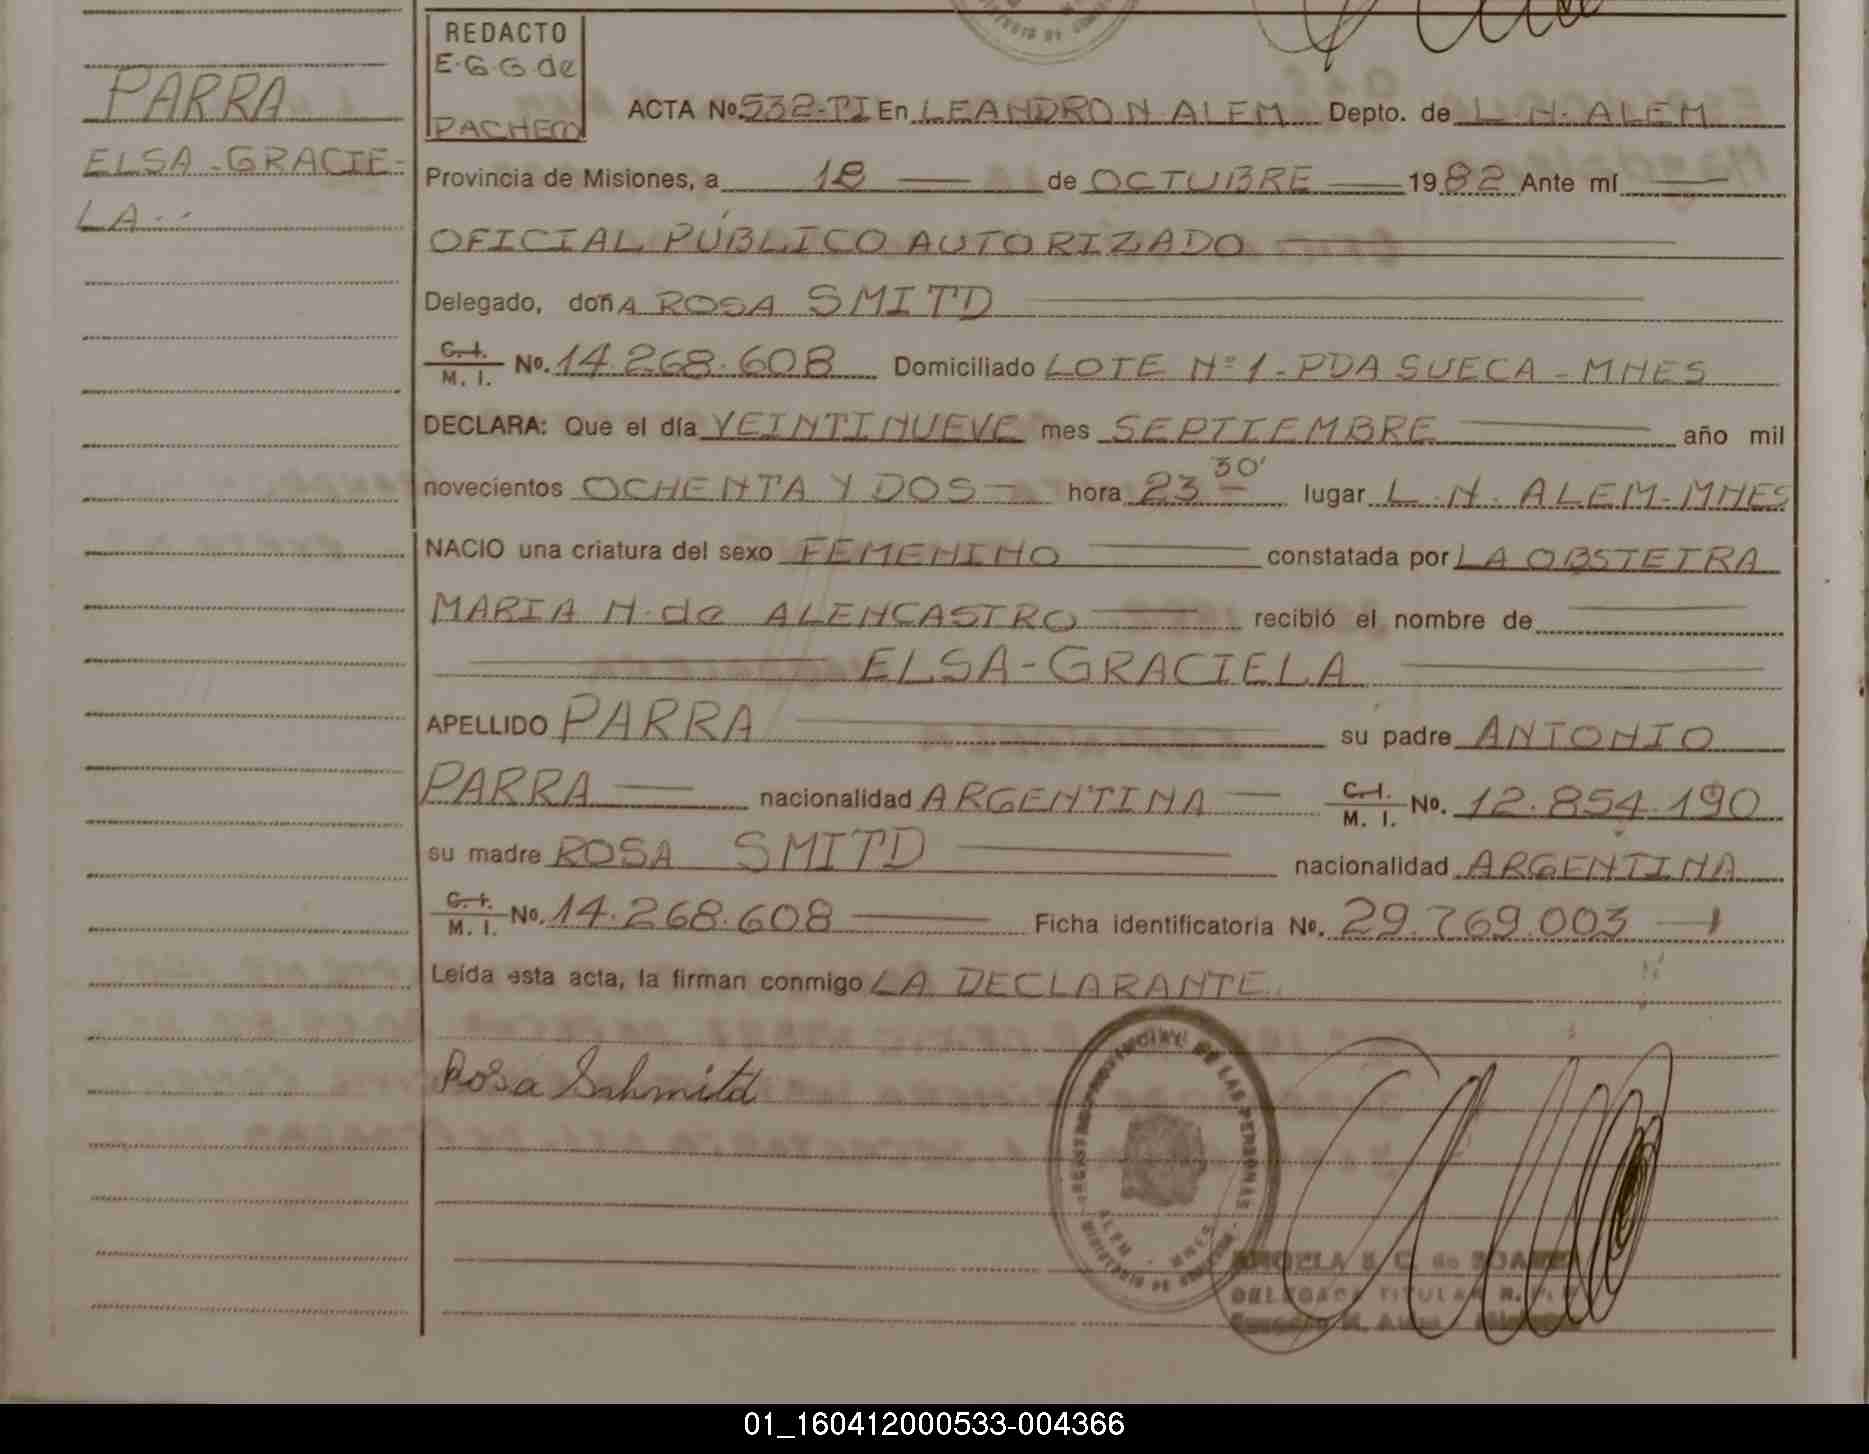 REDACTO
E.G.G. de
PACHECO
PARRA
ELSA-GRACIE-
LA.-
ACTA No. 532-TI En LEANDRO N ALEM Depto. de L. N. ALEM
Provincia de Misiones, a 18 de OCTUBRE 1982 Ante mí
OFICIAL PÚBLICO AUTORIZADO
Delegado, doñA ROSA SMITD
C. I. M. I. No. 14.268.608 Domiciliado LOTE Nº 1 - PDA SUECA - MNES
DECLARA: Que el día VEINTINUEVE mes SEPTIEMBRE año mil
novecientos OCHENTA Y DOS hora 23 30' lugar L. N. ALEM-MNES
NACIO una criatura del sexo FEMENINO constatada por LA OBSTETRA
MARIA N. de ALENCASTRO recibió el nombre de
ELSA-GRACIELA
APELLIDO PARRA su padre ANTONIO
PARRA nacionalidad ARGENTINA C. I. M. I. No. 12.854.190
su madre ROSA SMITD nacionalidad ARGENTINA
C. I. M. I. No. 14.268.608 Ficha identificatoria No. 29.769.003
Leída esta acta, la firman conmigo LA DECLARANTE.
Rosa Schmitd
DE LAS PERSONAS
ALEM - MNES
ANGELA S. C. de SOAREZ
DELEGADA TITULAR
01_160412000533-004366